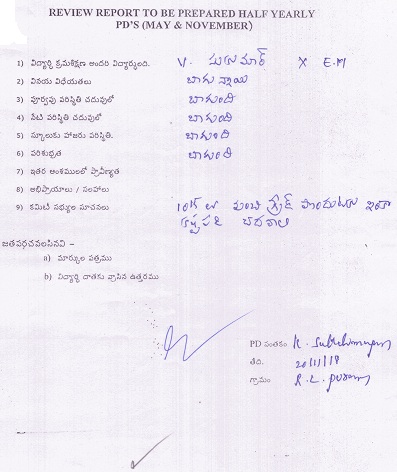 REVIEW REPORT TO BE PREPARED HALF YEARLY
PD'S (MAY & NOVEMBER)
1) విద్యార్థి క్రమశిక్షణ అందరి విద్యార్థులది. V. సుకుమార్ X E.M
2) వినయ విధేయతలు బాగున్నాయి
3) పూర్వపు పరిస్థితి చదువులో బాగుంది
4) నేటి పరిస్థితి చదువులో బాగుంది
5) స్కూలుకు హాజరు పరిస్థితి. బాగుంది
6) పరిశుభ్రత బాగుంది
7) ఇతర అంశములలో ప్రావీణ్యత
8) అభిప్రాయాలు / సలహాలు
9) కమిటి సభ్యుల సూచనలు 10th లో మంచి గ్రేడ్ పొందుటకు ఇంకా
జతపరచవలసినవి –
a) మార్కుల పత్రము
b) విద్యార్థి దాతకు వ్రాసిన ఉత్తరము
PD సంతకం
తేది.
గ్రామం R.L. puram